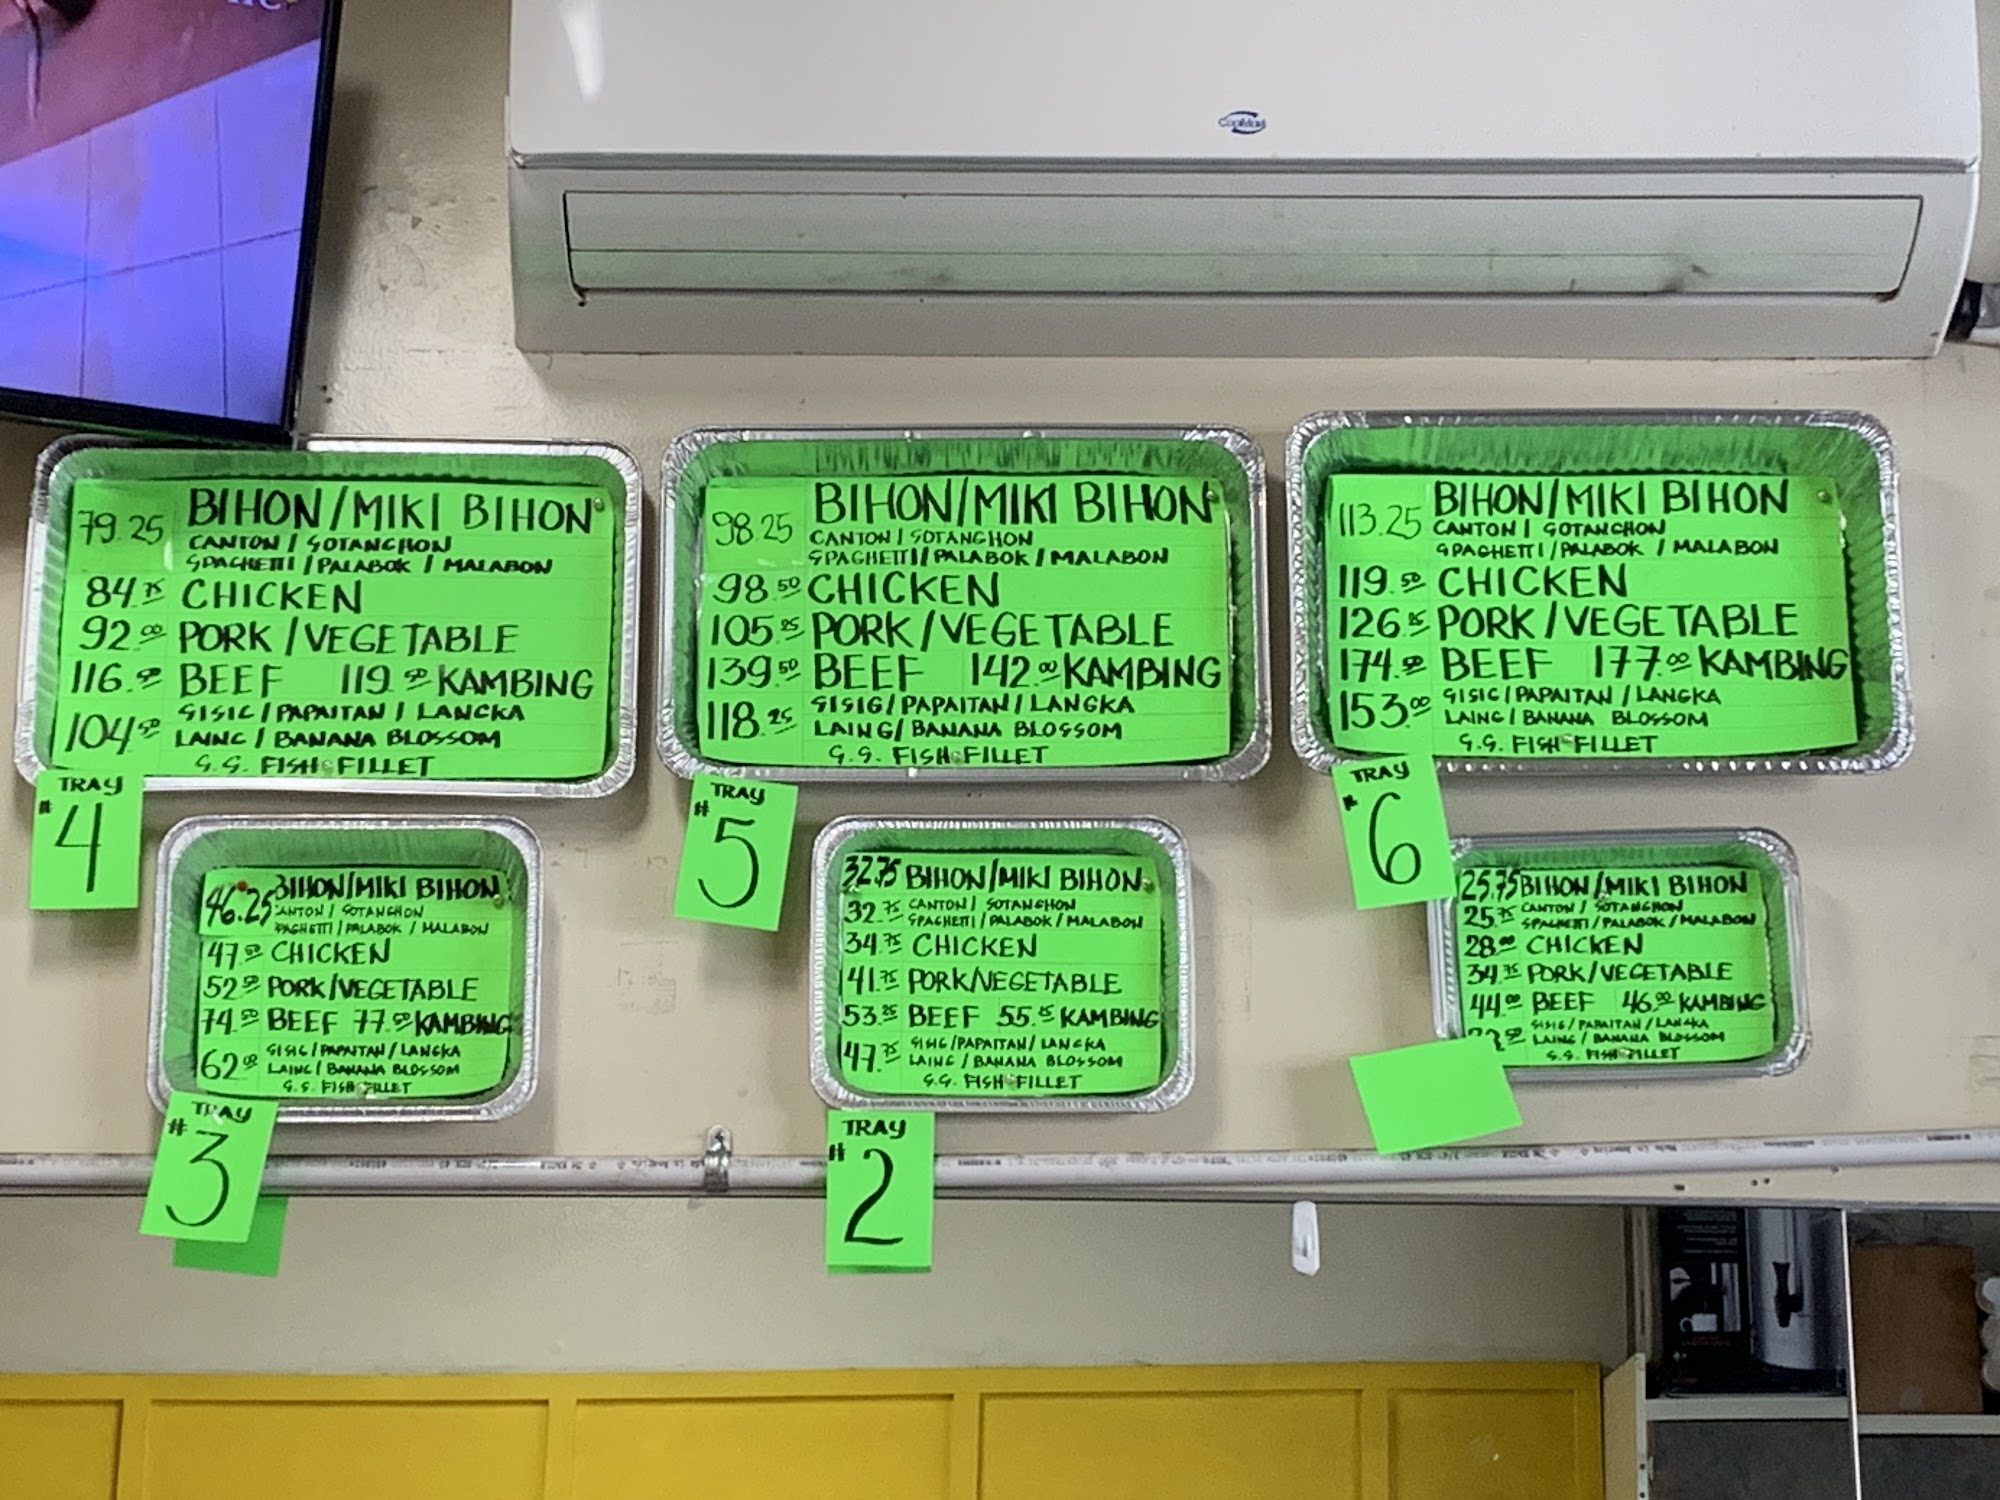 79.25 BIHON/MIKI BIHON
CANTON / SOTANGHON
SPAGHETTI/PALABOK / MALABON
84.75 CHICKEN
92.00 PORK/VEGETABLE
116.50 BEEF 119.50 KAMBING
SISIG/PAPAITAN / LANGKA
104.50 LAING/BANANA BLOSSOM
S.S. FISH FILLET
TRAY
# 4
98.25 BIHON/MIKI BIHON
CANTON / SOTANGHON
SPAGHETTI/PALABOK / MALABON
98.50 CHICKEN
105.25 PORK/VEGETABLE
139.50 BEEF 142.00 KAMBING
SISIG/PAPAITAN/LANGKA
118.25 LAING/BANANA BLOSSOM
S.S. FISH FILLET
TRAY
# 5
113.25 BIHON/MIKI BIHON
CANTON / SOTANGHON
SPAGHETTI/PALABOK / MALABON
119.50 CHICKEN
126.25 PORK/VEGETABLE
174.50 BEEF 177.00 KAMBING
SISIG/PAPAITAN/LANGKA
153.00 LAING/BANANA BLOSSOM
S.S. FISH FILLET
TRAY
# 6
46.25 BIHON/MIKI BIHON
CANTON / SOTANGHON
PAGHETTI/PALABOK / MALABON
47.50 CHICKEN
52.50 PORK/VEGETABLE
74.50 BEEF 77.50 KAMBING
SISIG/PAPAITAN/LANGKA
62.00 LAING/BANANA BLOSSOM
S.S. FISH FILLET
TRAY
# 3
32.75 BIHON/MIKI BIHON
32.75 CANTON / SOTANGHON
SPAGHETTI/PALABOK/MALABON
34.75 CHICKEN
41.75 PORK/VEGETABLE
53.25 BEEF 55.25 KAMBING
SISIG/PAPAITAN/LANGKA
47.75 LAING/BANANA BLOSSOM
S.S. FISH FILLET
TRAY
# 2
25.75 BIHON/MIKI BIHON
25.75 CANTON / SOTANGHON
SPAGHETTI/PALABOK/MALABON
28.00 CHICKEN
34.75 PORK/VEGETABLE
44.00 BEEF 46.00 KAMBING
SISIG/PAPAITAN/LANGKA
LAING/BANANA BLOSSOM
S.S. FISH FILLET